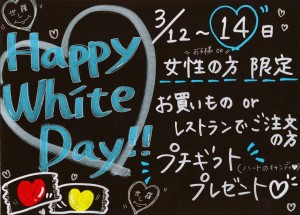 Happy
White
Day!!
3/12〜14日
お子様 or
女性の方 限定
お買いもの or
レストランでご注文
の方
プチギフト
(ハートのキャンディ♡)
プレゼント♡